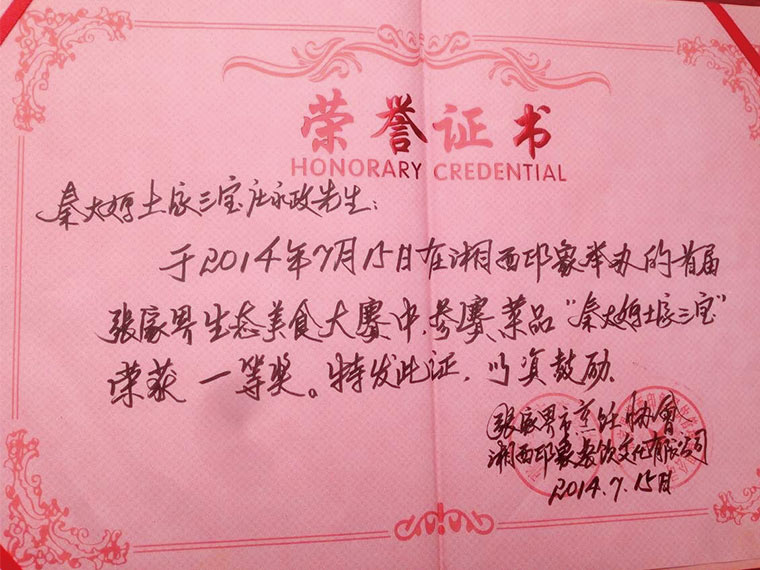 荣誉证书
HONORARY CREDENTIAL
秦大妈土家三宝庄永政先生：
于2014年7月15日在湘西印象举办的首届
张家界生态美食大赛中，参赛菜品“秦大妈土家三宝”
荣获一等奖。特发此证，以资鼓励。
张家界市烹饪协会
湘西印象餐饮文化有限公司
2014.7.15日